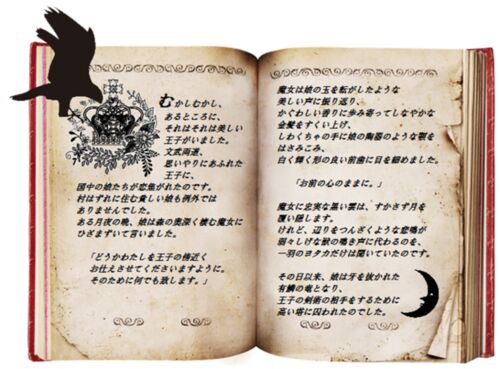 むかしむかし、
あるところに、
それはそれは美しい
王子がいました。
文武両道、
思いやりにあふれた
王子に、
国中の娘たちが恋焦がれたのです。
村はずれに住む貧しい娘も例外では
ありませんでした。
ある月夜の晩、娘は森の奥深く棲む魔女に
ひざまずいて言いました。
「どうかわたしを王子の傍近く
お仕えさせてくださいますように。
そのために何でも致します。」
魔女は娘の玉を転がしたような
美しい声に振り返り、
かぐわしい香りに歩み寄ってしなやかな
金髪をすくい上げ、
しわくちゃの手に娘の陶器のような顎を
はさみこみ、
白く輝く形の良い前歯に目を細めました。
「お前の心のままに。」
魔女に忠実な黒い雲は、すかさず月を
覆い隠します。
けれど、辺りをつんざくような悲鳴が
弱々しげな獣の鳴き声に代わるのを、
一羽のヨタカだけは聞いていたのです。
その日以来、娘は牙を抜かれた
有鱗の竜となり、
王子の剣術の相手をするために
高い塔に囚われたのでした。